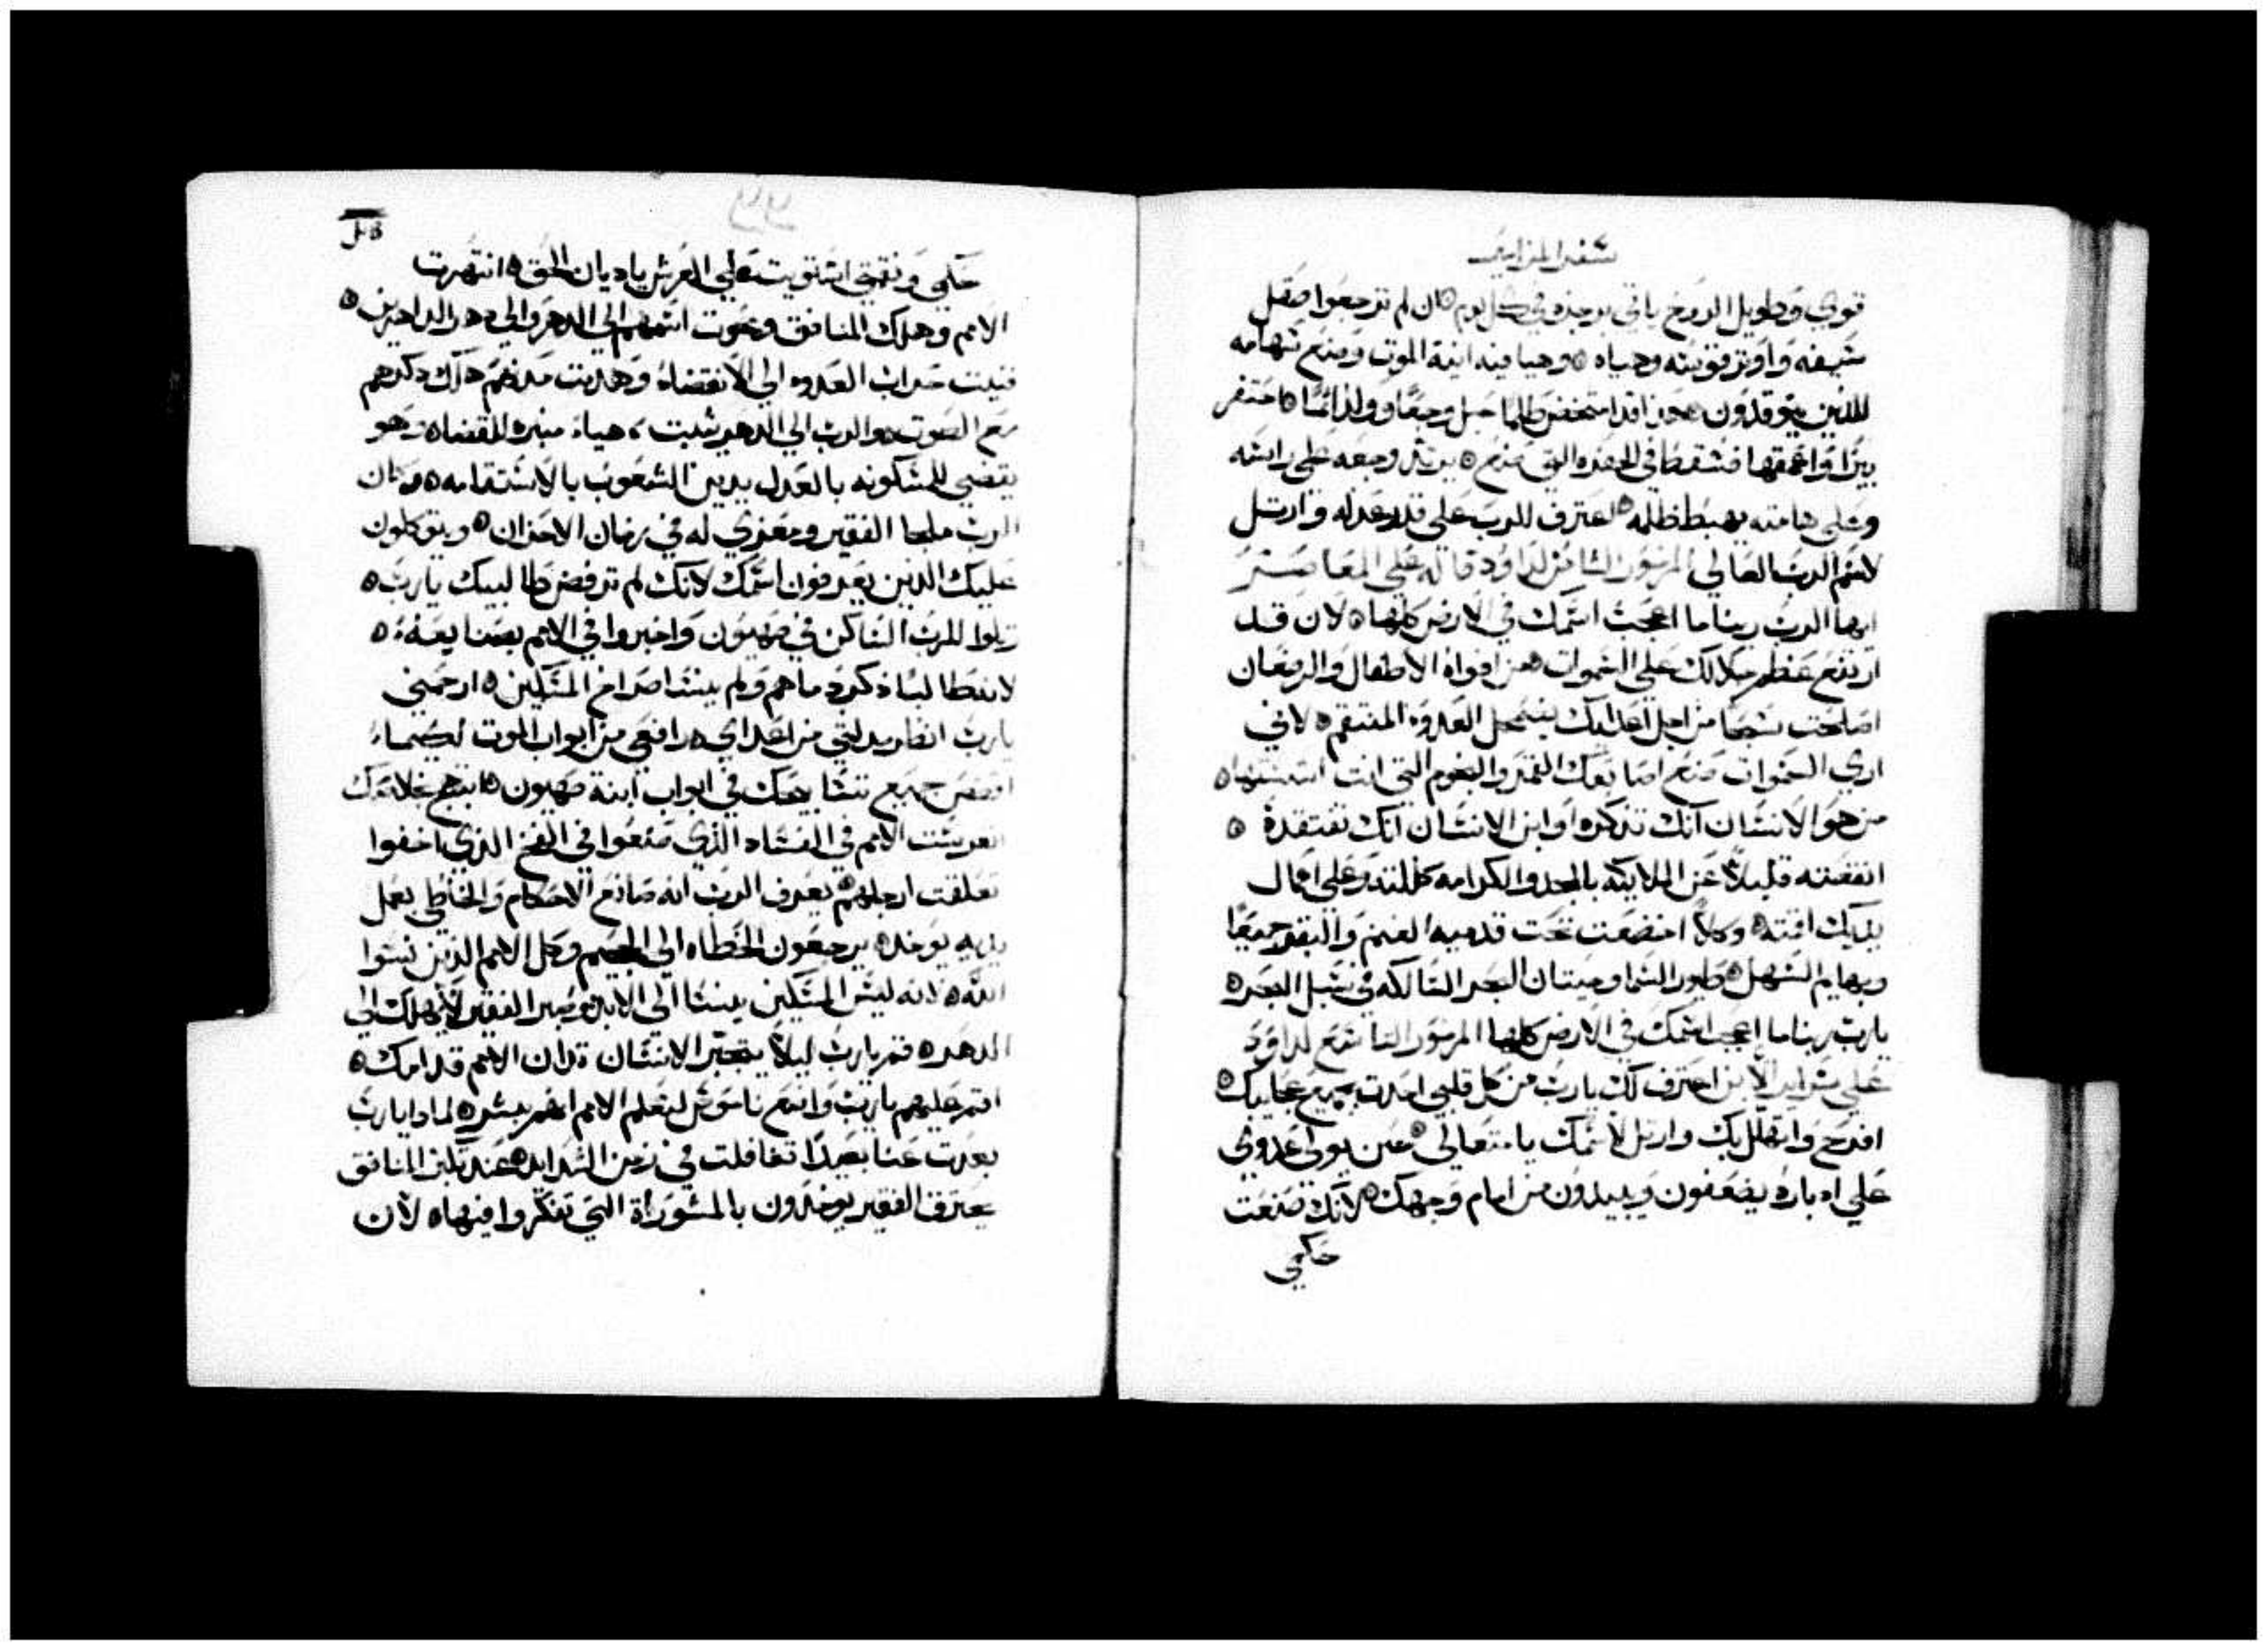 سفر المزامير
قوي وطويل الروح ياتي بوجزه في كل يوم ان لم ترجعوا صقل
سيفه واوتر قوسه وهياه وهيا فيه انية الموت وصنع سهامه
للذين يتوقدون هوذا قد امتخض ظالما حبل وجعا وولد اثما حفر
بيرا واعمقها فسقط في الحفره التي صنع يرتد وجعه علي راسه
وعلي هامته يهبط ظلمه اعترف للرب علي قدر عدله وارتل
لاسم الرب العالي المزمور الثامن لداود قاله علي المعاصر
ايها الرب ربنا ما اعجب اسمك في الارض كلها لان قد
ارتفع عظم جلالك علي السموات من افواه الاطفال والرضعان
اصلحت سبحا من اجل اعدايك ليضمحل العدوه المنتقم لاني
اري السموات صنع اصابعك القمر والنجوم التي انت اسستها
من هو الانسان انك تذكره او ابن الانسان انك تفتقده
انقصته قليلا عن الملايكه بالمجد والكرامه كللته وعلي اعمال
يديك اقمته وكلا اخضعت تحت قدميه الغنم والبقر جميعا
وبهايم السهل طيور السما وحيتان البحر السالكه في سبل البحر
يارب ربنا ما اعجب اسمك في الارض كلها المزمور التاسع لداود
علي سراير الابن اعترف لك يارب من كل قلبي احدث بجميع عجايبك
افرح واتهلل بك وارتل لاسمك يا متعالي حين يولي عدوي
علي ادباره يضعفون ويبيدون من امام وجهك لانك صنعت
حكمي
حكمي ونقمتي استويت علي العرش ياديان الحق انتهرت
الامم وهلك المنافق ومحوت اسمهم الي الدهر والي دهر الداهرين
فنيت حراب العدوه الي الانقضاء وهديت مدنهم هلك ذكرهم
مع الصوت والرب الي الدهر يثبت هياء منبره للقضاه وهو
يقضي للمسكونه بالعدل يدين الشعوب بالاستقامه وكان
الرب ملجا الفقير ومعزي له في زمان الاحزان ويتوكلون
عليك الذين يعرفون اسمك لانك لم ترفض طالبيك يارب
رتلوا للرب الساكن في صهيون واخبروا في الامم بصنايعه
لانه طالبا ذكر دماهم ولم ينسا صراخ المساكين ارحمني
يارب انظر مذلتي من اعداي رافعي من ابواب الموت لكيما
اقصص جميع تسابيحك في ابواب ابنة صهيون ابتهج بخلاصك
تعربست الامم في الفساد الذي صنعوا في الفخ الذي اخفوا
تعلقت ارجلهم يعرف الرب انه صانع الاحكام والخاطي بعمل
يديه يوخذ يرجعون الخطاه الي الجحيم وكل الامم الذين نسوا
الله لانه ليس المسكين ينسا الي الابد وصبر الفقير لا يهلك الي
الدهر قم يارب ليلا يتجبر الانسان تدان الامم قدامك
اقم عليهم يارب واضع ناموس لتعلم الامم انهم بشر لماذا يارب
بعدت عنا بعيدا تغافلت في زمن الشدايد عند تكبر المنافق
يحترق الفقير يوخذون بالمشوراة التي تفكروا فيها لان